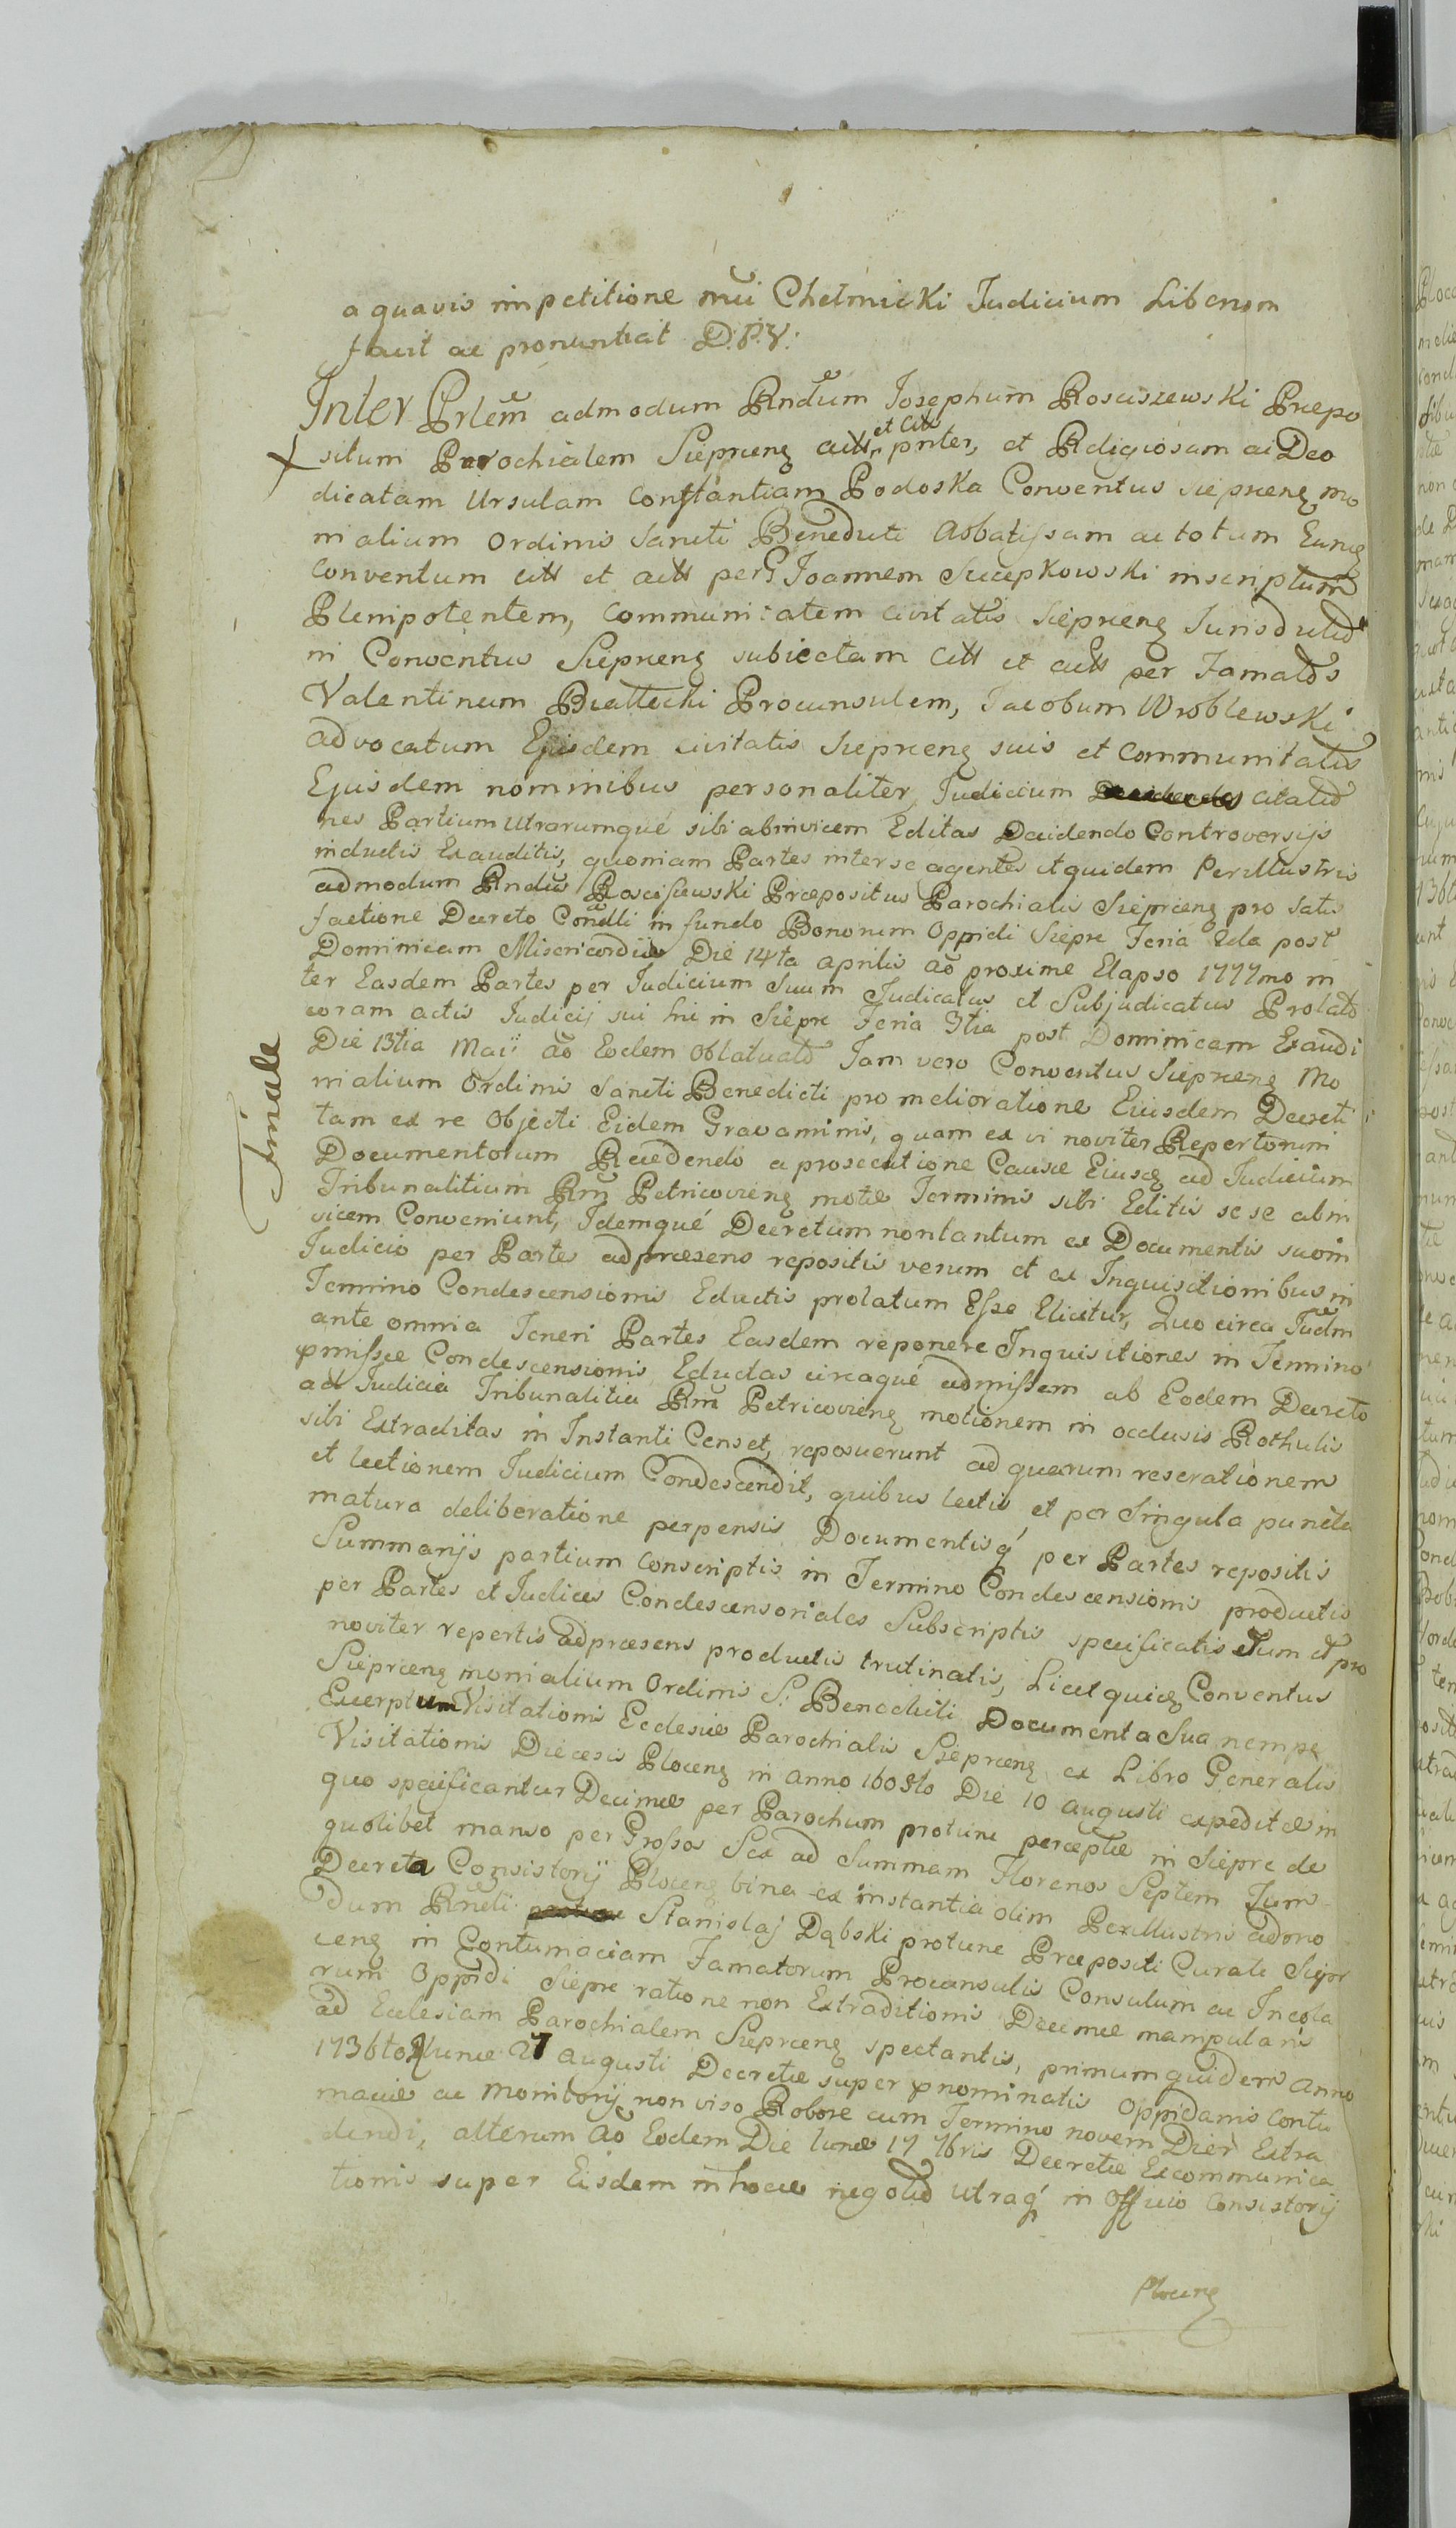 a quavis impetitione mci Chełmicki Judicium Liberum
facit ac pronuntiat D.P.V.
Inter Prlem admodum Rndum Josephum Rosciszewski Præpo
situm Parochialem Sieprceng actt et citt pnter, et Religiosam ac Deo
dicatam Ursulam Constantiam Podoska Conventus Sieprceng mo
nialium Ordinis Sancti Benedicti Abbatissam ac totum Eung
Conventum citt et actt per G Joannem Sucepkowski inscriptum
Plenipotentem, Communitatem Civitatis Sieprceng Jurisdictio
ni Conventus Sieprceng subiectam citt et actt per Famatos
Valentinum Biattecki Proconsulem, Jacobum Wroblewski
advocatum Ejusdem civitatis Sieprceng suis et Communitatis
Ejusdem nominibus personaliter, Judicium citatio
nes Partium Utrarumque sibi abinvicem Editas Decidendo Controversijs
inductis Exauditis, quoniam Partes inter se agentes et quidem Perillustris
admodum Rndus Roscissewski Præpositus Parochialis Sieprceng pro satis
factione Decreto Condlli in fundo Bonorum Oppidi Siepre Feria 2da post
Dominicam Misericordiæ Die 14ta aprilis ao proxime Elapso 1777mo in
ter Easdem Partes per Judicium Suum Judicatus et Subjudicatus Prolato
coram actis Judicij sui hic in Siepre Feria 3tia post Dominicam Exaudi
Die 13tia Maij ao Eodem Oblatuato Jam vero Conventus Sieprceng Mo
nialium Ordinis Sancti Benedicti pro melioratione Eiusdem Decreti
tam ex re Objecti Eidem Gravaminis, quam ex vi noviter Repertorum
Documentorum Recedendo a prosecutione Causæ Eiusq ad Judicium
Tribunalitium Rni Petricovieng motæ Terminis sibi Editis sese abin
vicem Conveniunt, Idemque Decretum non tantum ex Documentis suo in
Judicio per Partes ad præsens repositis verum et ex Inquisitionibus in
Termino Condescensionis Eductis prolatum Esse Elicitur, Quo circa Judm
ante omnia Teneri Partes Easdem reponere Inquisitiones in Termino
pmissæ Condescensionis Eductas circaque admissam ab Eodem Decreto
ad Judicia Tribunalitia Rni Petricovieng motionem in occlusis Rothulis
sibi Extraditas in Instanti Censet, reposuerunt ad quarum reserationem
et lectionem Judicium Condescendit, quibus lectis, et per Singula puncta
matura deliberatione perpensis Documentisq per Partes repositis
Summarijs partium conscriptis in Termino Condescensionis productis
per Partes et Judices Condescensoriales Subscriptis specificatis Tum et pro
noviter repertis ad præsens productis trutinatis, Licet quidq Conventus
Sieprceng monialium Ordinis S. Benedicti Documenta Sua nempe
Excerptum Visitationis Ecclesiæ Parochialis Sieprceng ex Libro Generalis
Visitationis Diæcesis Ploceng in anno 1605to Die 10 augusti expeditæ in
quo specificantur Decimæ per Parochum protunc perceptæ in Siepre de
quolibet manso per Grossos Sex ad Summam Florenos Septem Tum
Decreta Consistorij Ploceng bina ex instantia olim Perillustris admo
dum Rndi Stanislaj Dąbski protunc Præpositi Curati Siepr
ceng in Contumaciam Famatorum Proconsulis Consulum ac Incola
rum Oppidi Siepre ratione non Extraditionis Decimæ manipularis
ad Ecclesiam Parochialem Sieprceng spectantis, primum quidem anno
1736to Lunæ 27 augusti Decretæ super pnominatis Oppidanis Contu
maciæ ac Monitorij non viso Robore cum Termino novem Dier Extra
dendi, alterum ao Eodem Die Lunæ 17 7bris Decretæ Excommunica
tionis super Eisdem in hocce negotio utraq in Officio Consistorij
Ploceng
Finale